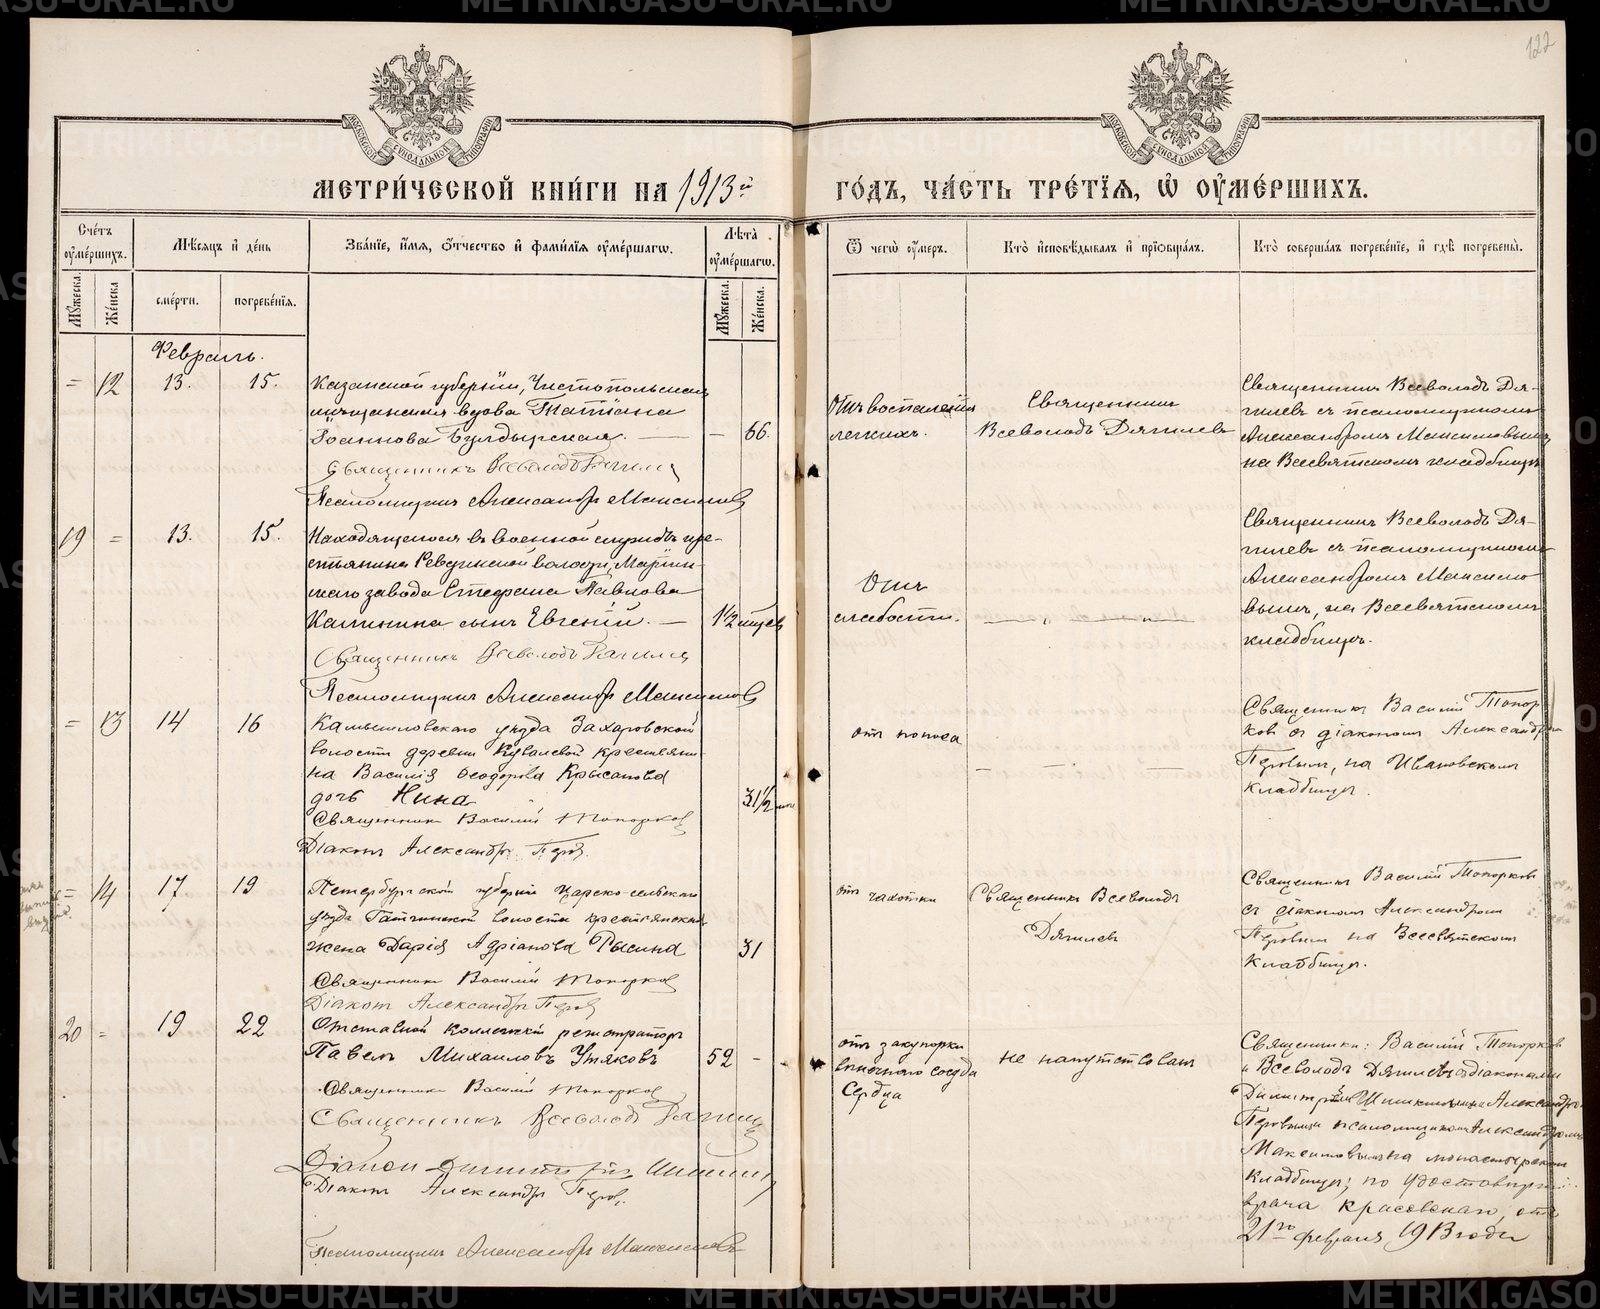 122
МЕТРИ́ЧЕСКОЙ КНИ́ГИ НА 1913й
ГО́ДЪ, ЧА́СТЬ ТРЕ́ТІЯ, Ѡ҆ ОУ҆МЕ́РШИХЪ.
Сче́тъ оу҆ме́ршихъ.
Мѣ́сяцъ и҆ де́нь
Зва́нїе, и҆́мя, ѻ҆́тчество и҆ фами́лїя оу҆ме́ршагѡ.
Лѣ́та оу҆ме́ршагѡ.
Ѿ чегѡ̀ оу҆́меръ.
Кто̀ и҆сповѣ́дывалъ и҆ прїѡбща́лъ.
Кто̀ соверша́лъ погребе́нїе, и҆ гдѣ̀ погребены̀.
Мꙋ́жеска.
Же́нска
сме́рти.
погребе́нїя.
Мꙋ́жеска.
Же́нска.
Февраль.
= 12 13. 15.
Казанской губерніи, Чистопольская
мѣщанская вдова Татіана
Іоаннова Булдырская. — — 66.
Священникъ Всеволодъ Дягилев
Псаломщикъ Александръ Максимовъ
Отъ воспаленія
легкихъ.
Священникъ
Всеволодъ Дягилевъ
Священникъ Всеволодъ Дя-
гилевъ съ псаломщикомъ
Александромъ Максимовымъ,
на Всесвятскомъ кладбищѣ
19 = 13. 15.
Находящагося въ военной службѣ кре-
стьянина Ревдинской волости, Маріин-
скаго завода Стефана Павлова
Калинина сынъ Евгеній. — 1½ мѣсяц
Священникъ Всеволодъ Дягилев
Псаломщикъ Александръ Максимовъ
Отъ
слабости.
Священникъ Всеволодъ Дя-
гилевъ съ псаломщикомъ
Александромъ Максимо
вымъ, на Всесвятскомъ
кладбищѣ.
= 13 14 16
Камышловскаго уѣзда Захаровской
волости деревни крестьяни
на Василія Ѳеодорова Крысанова
дочь Нина
Священникъ Василій Топорков
Діаконъ Александръ Перов.
отъ поноса
Священникъ Василій Топор
ков съ діакономъ Александром
Перовымъ, на Ивановскомъ
кладбищѣ.
= 14 17 19
Петербургской губерніи Царско-сельскаго
уѣзда Гатчинской волости крестьянская
жена Дарія Адріанова Рысина 31
Священникъ Василій Топорков
Діаконъ Александръ Перов
отъ чахотки
Священникъ Всеволодъ
Дягилевъ
Священникъ Василій Топорков
съ діакономъ Александромъ
Перовымъ на Всесвятскомъ
кладбищѣ.
20 = 19 22
Отставной коллежскій регистраторъ
Павелъ Михаиловъ Утяковъ 52 -
Священникъ Василій Топорков
Священникъ Всеволод Дягилев
Діакон Димитрій
Діаконъ Александръ Перов.
Псаломщикъ Александръ Максимовъ
отъ закупорки
сосуда
сердца
не напутствован
Священники: Василій Топорков
и Всеволодъ Дягилевъ съ діаконами
Димитріем и Александром
Перовымъ и псаломщикомъ Александромъ
Максимовымъ на монастырском
кладбищѣ; по удостовѣрен
врача Красовскаго, отъ
21го февраля 1913 года
METRIKI.GASO-URAL.RU